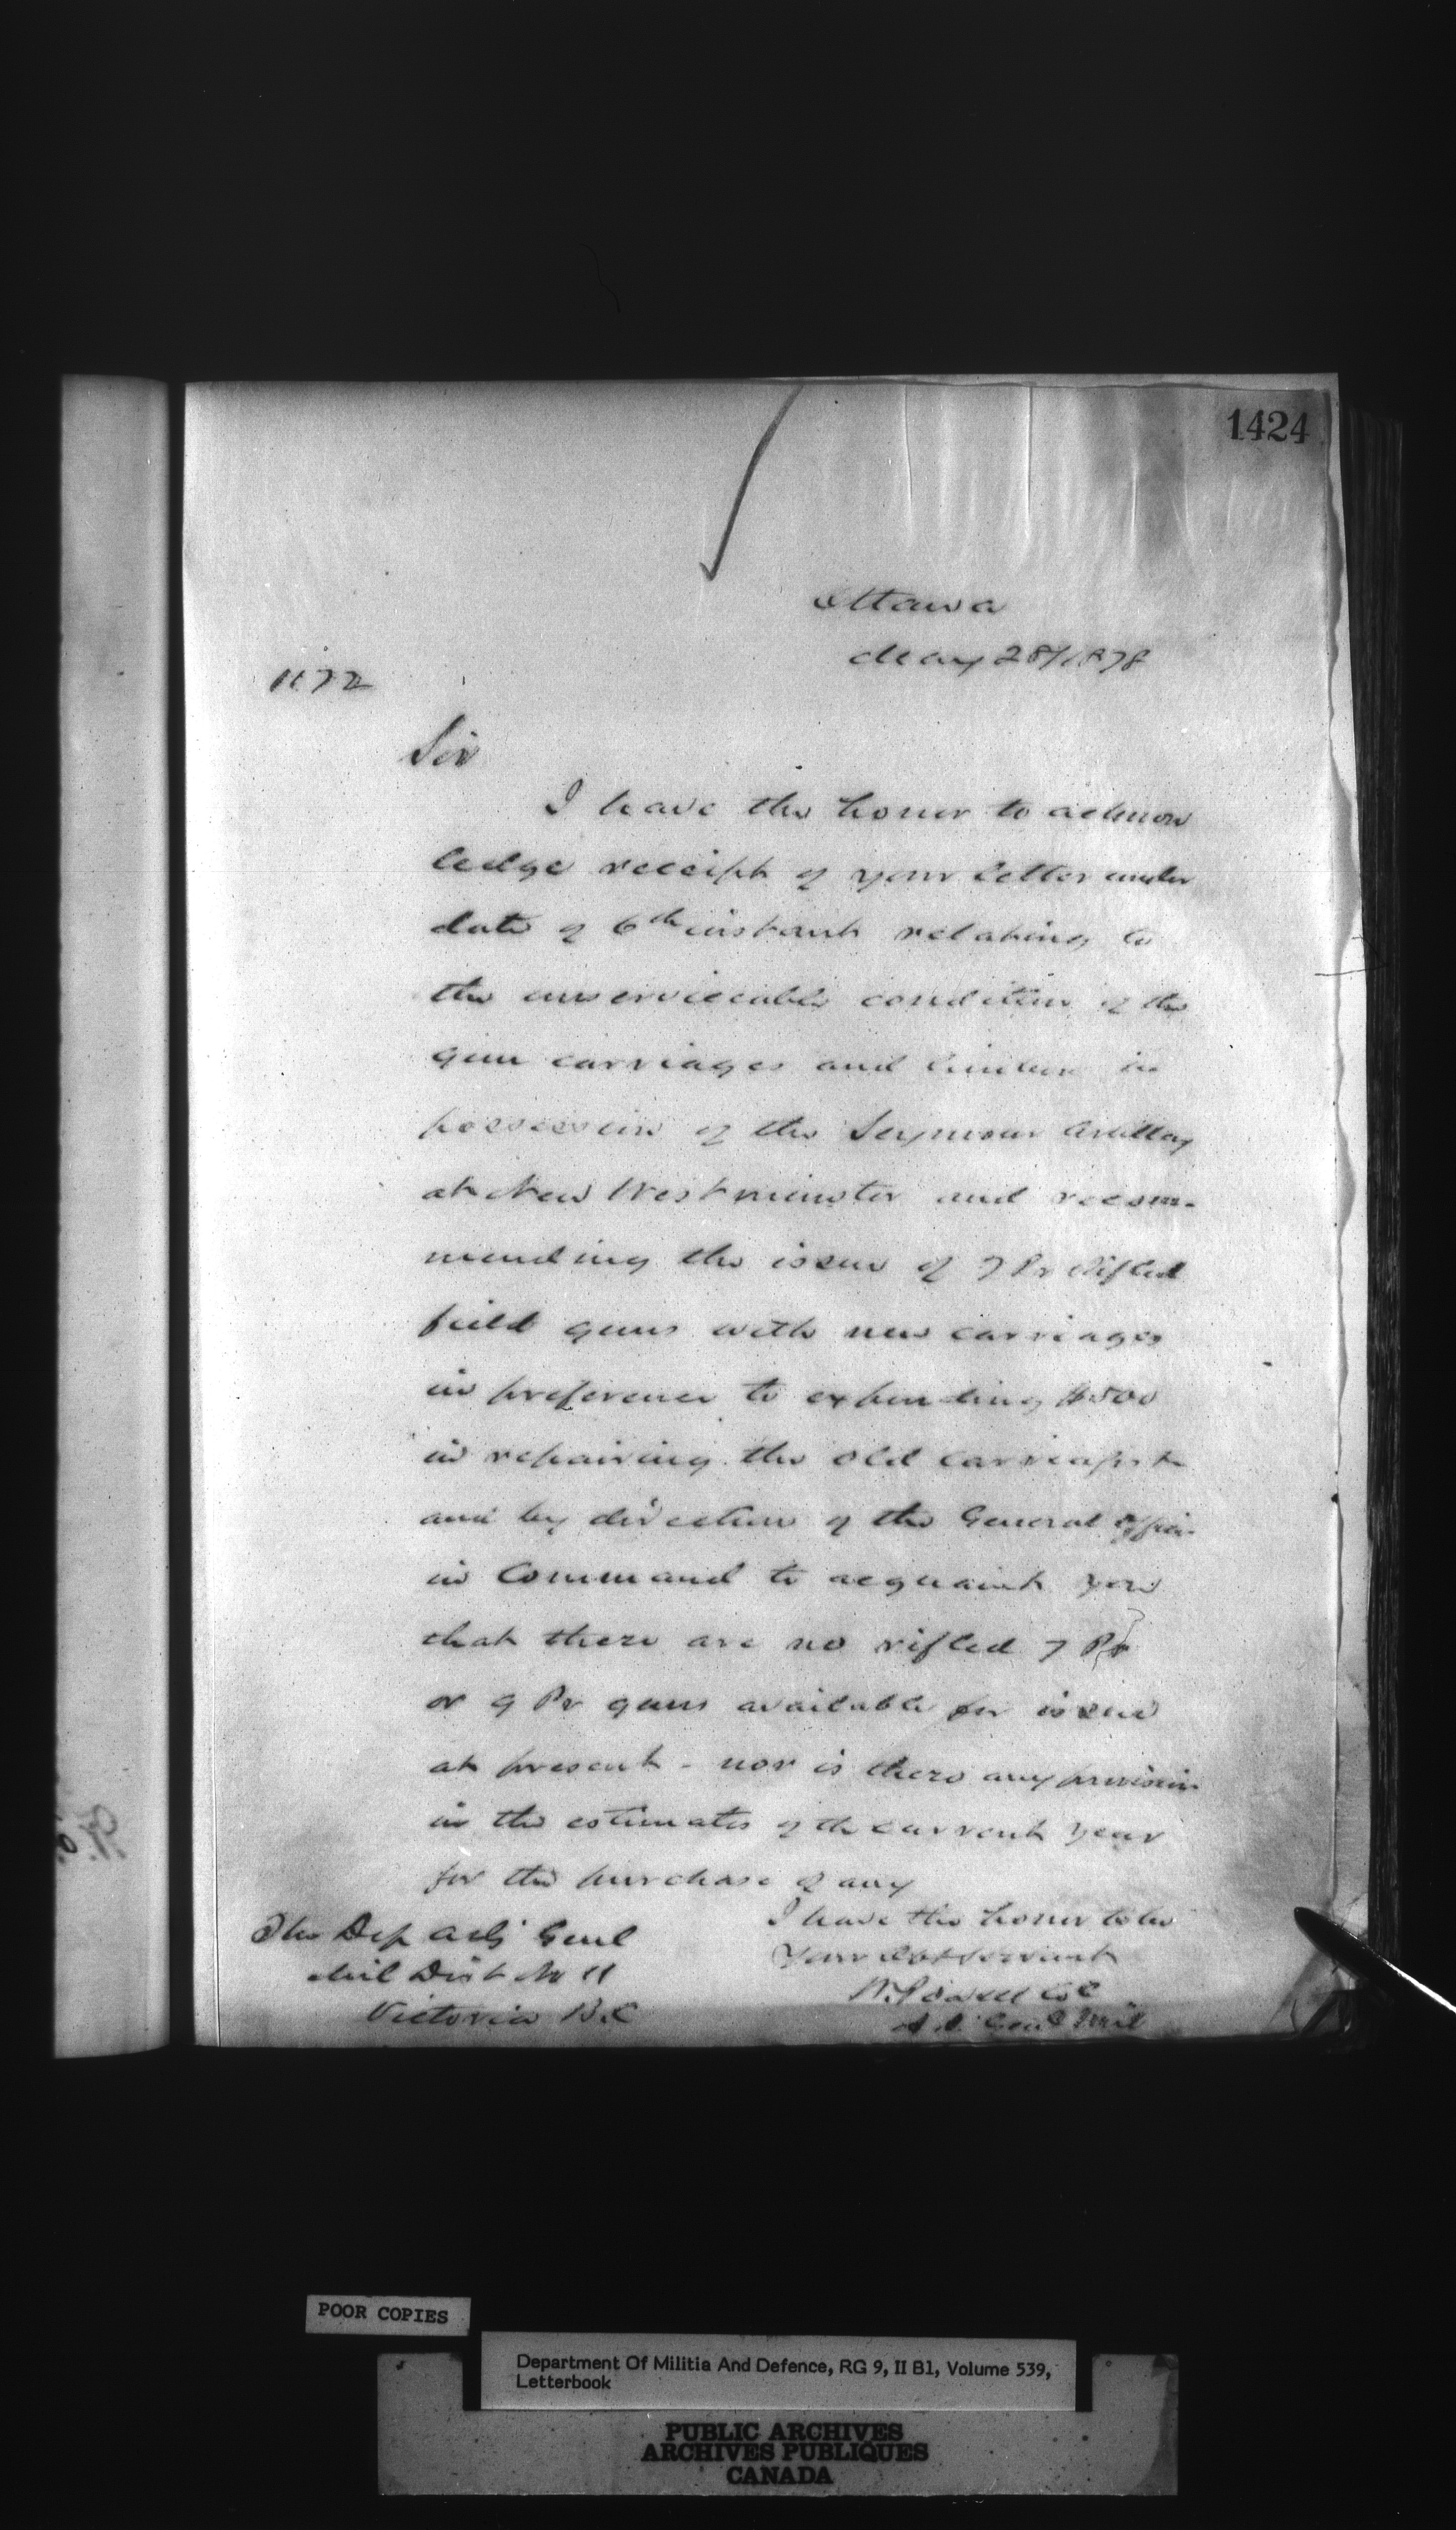 1424
Ottawa
May 28/1878
1172
Sir
I have the honor to acknow
ledge receipt of your letter under
date of 6th instant relating to
the unserviceable condition of the
gun carriages and limbers in
possession of the Seymour Artillery
at New Westminster and recom-
mending the issue of 7 Pr Rifled
field guns with new carriages
in preference to expending $500
in repairing the old carriages &
and by direction of the General Officer
in Command to acquaint you
that there are no rifled 7 Pr
or 9 Pr guns available for issue
at present - nor is there any provision
in the estimates of the current year
for the purchase of any
I have the honor to be
Your Obt Servant
W. Powell Col
A. G. Genl Mil
The Dep Adj Genl
Mil Dist No 11
Victoria B.C
POOR COPIES
Department Of Militia And Defence, RG 9, II B1, Volume 539,
Letterbook
PUBLIC ARCHIVES
ARCHIVES PUBLIQUES
CANADA